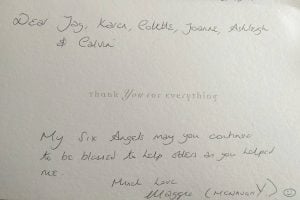 Dear Jay, Karen, Collette, Joanne, Ashleigh
& Calvin
thank You for everything
My Six Angels may you continue
to be blessed to help others as you helped
me.
Much Love
Maggie